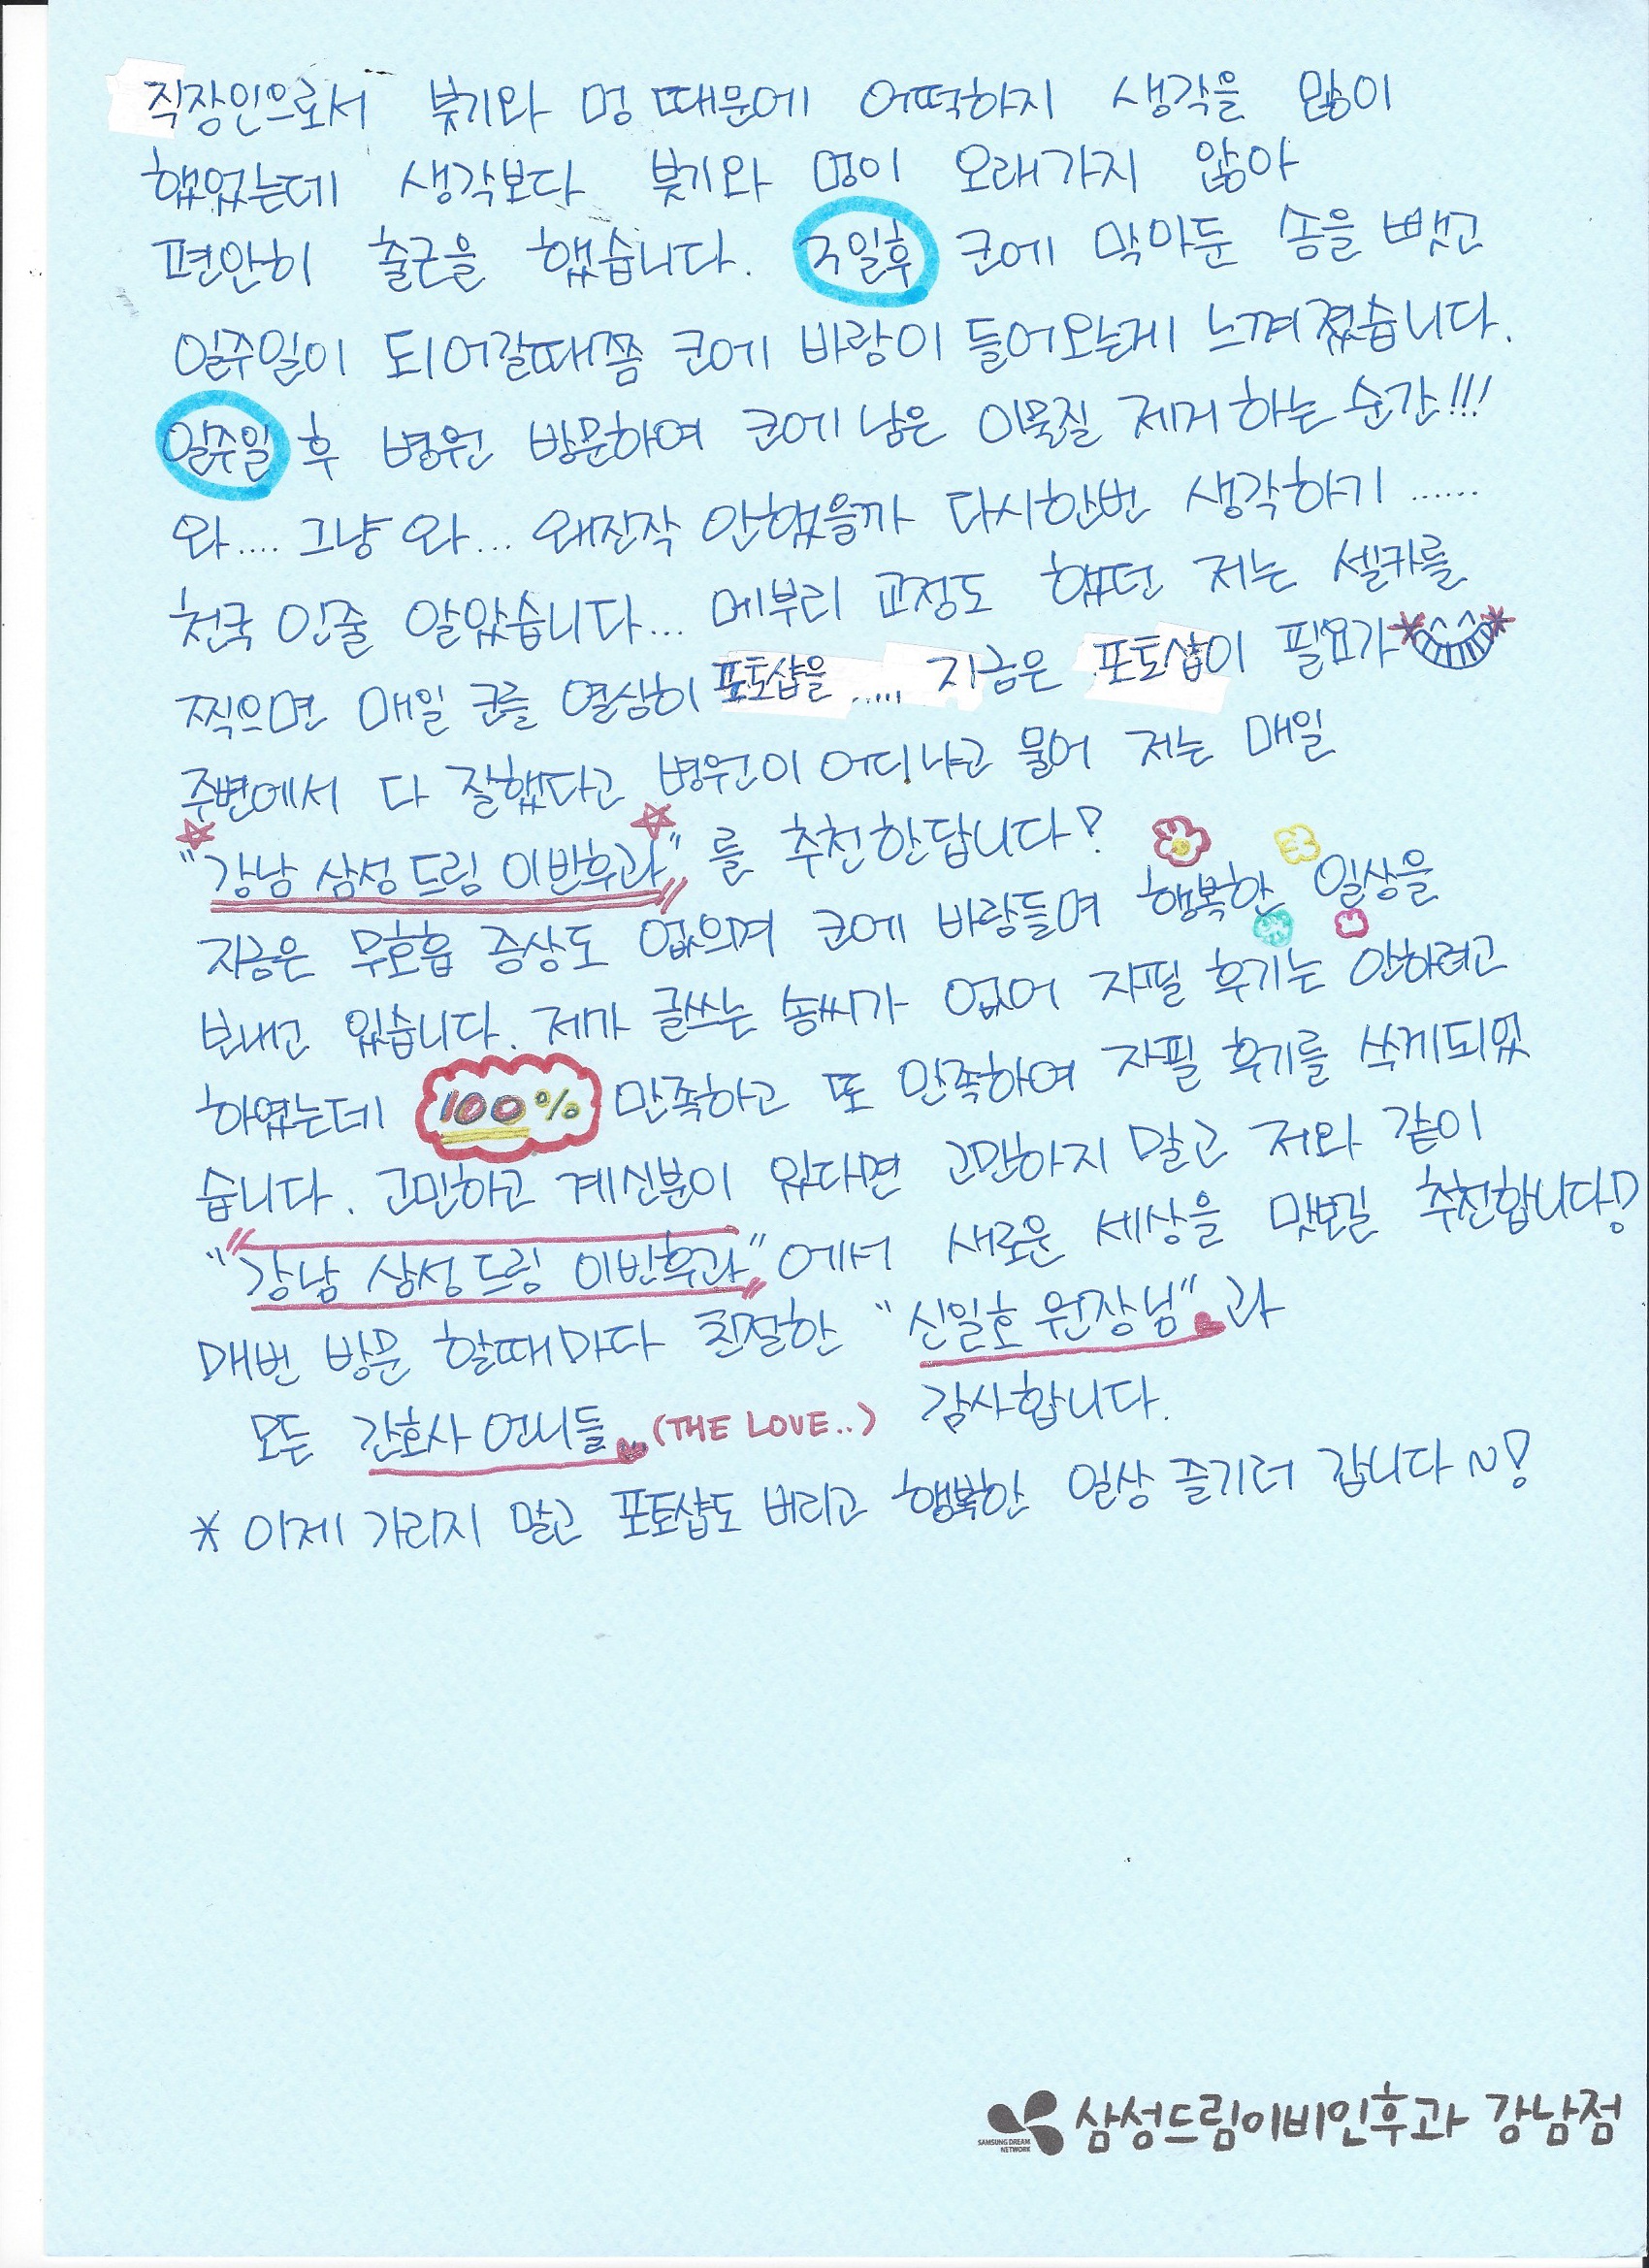 직장인으로서 붓기와 멍 때문에 어떡하지 생각을 많이
했었는데 생각보다 붓기와 멍이 오래가지 않아
편안히 출근을 했습니다. 2일후 코에 막아둔 솜을 뺐고
일주일이 되어갈때쯤 코에 바람이 들어오는게 느껴졌습니다.
일주일 후 병원 방문하여 코에 남은 이물질 제거하는 순간!!!
와.... 그냥 와... 왜진작 안했을까 다시한번 생각하기 ......
천국 인줄 알았습니다... 메부리 교정도 했던 저는 셀카를
찍으면 매일 코를 열심히 포토샵을 ..... 지금은 포토샵이 필요가
주변에서 다 잘했다고 병원이 어디냐고 물어 저는 매일
"강남 삼성드림 이빈후과" 를 추천한답니다!
지금은 무호흡 증상도 없으며 코에 바람들며 행복한 일상을
보내고 있습니다. 제가 글쓰는 솜씨가 없어 자필 후기는 안하려고
하였는데 100% 만족하고 또 만족하여 자필 후기를 쓰게되었
습니다. 고민하고 계신분이 있다면 고민하지 말고 저와 같이
"강남 삼성드림 이빈후과" 에서 새로운 세상을 맛보길 추천합니다!
매번 방문 할때마다 친절한 "신일호 원장님" 과
모든 간호사 언니들 (THE LOVE..) 감사합니다.
* 이제 가리지 말고 포토샵도 버리고 행복한 일상 즐기러 갑니다~!
SAMSUNG DREAM NETWORK 삼성드림이비인후과 강남점